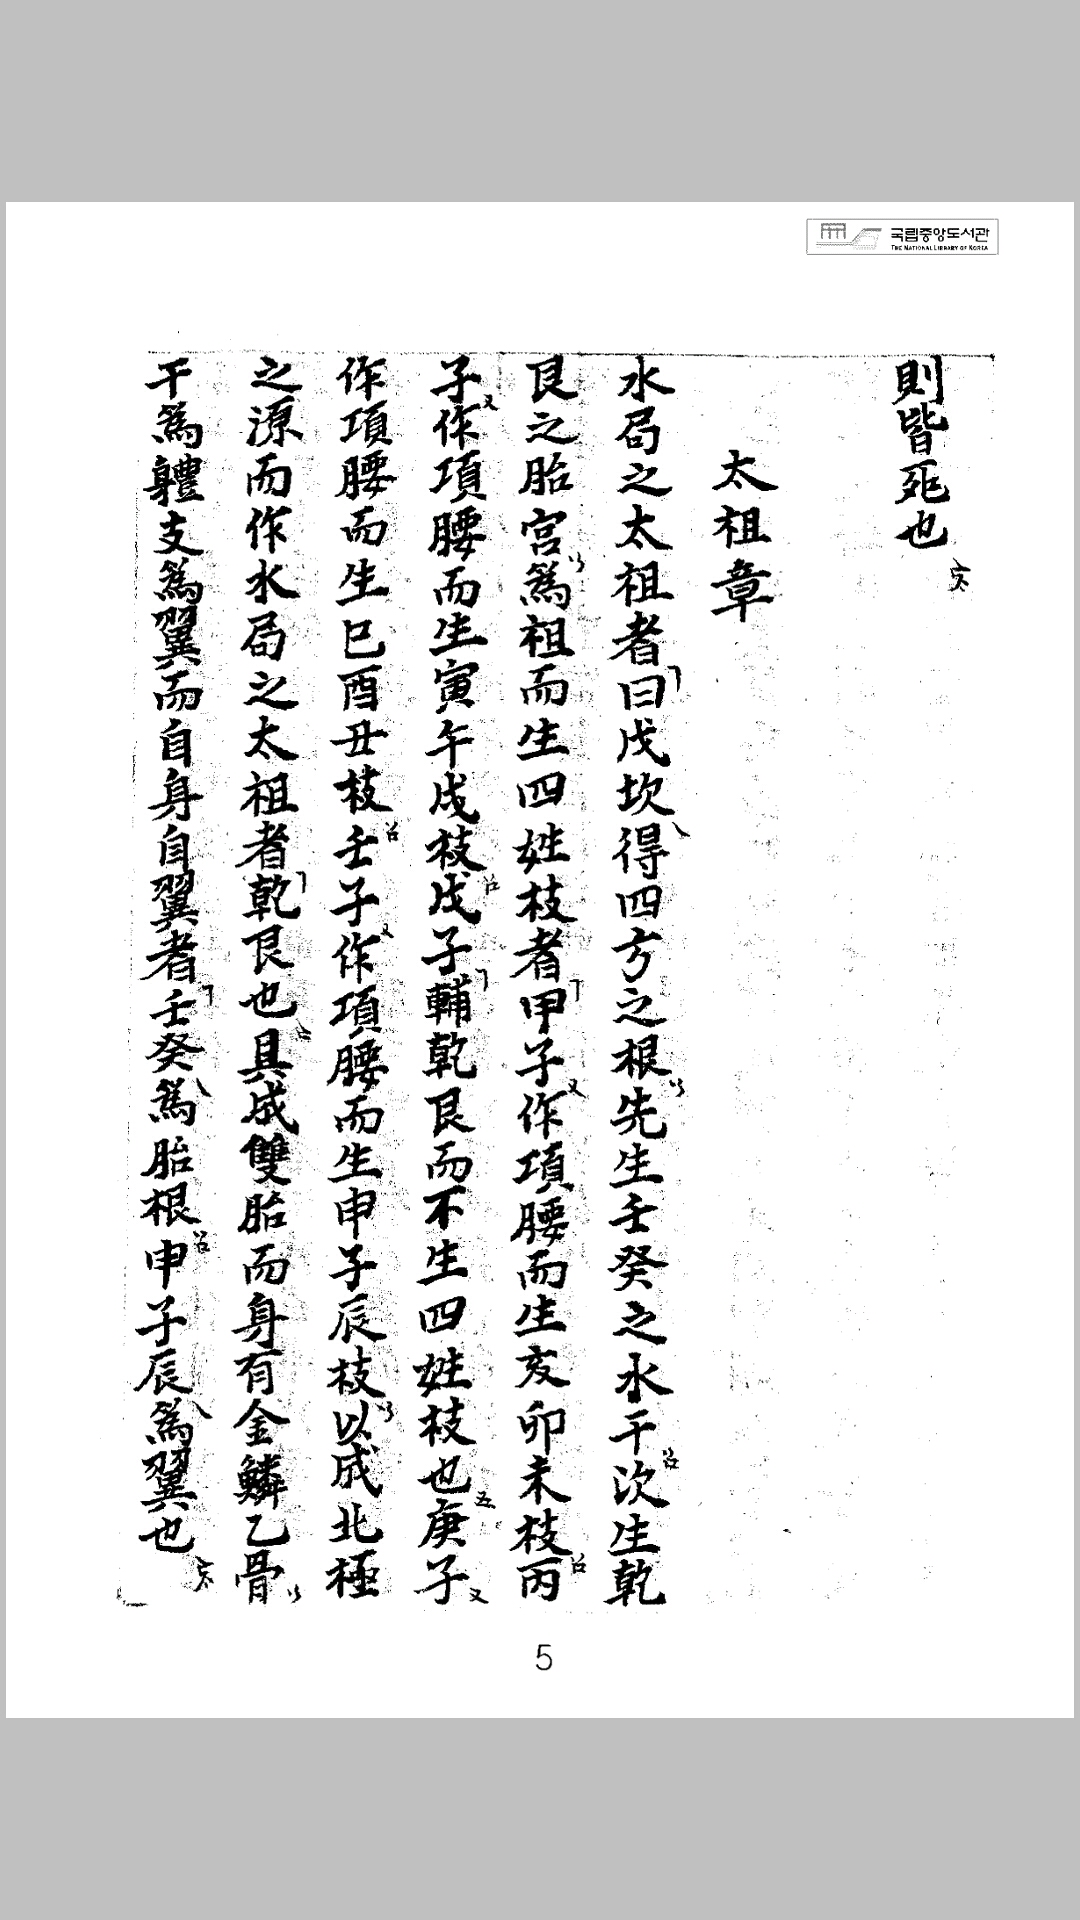 국립중앙도서관
THE NATIONAL LIBRARY OF KOREA
則皆死也
太祖章
水局之太祖者曰戊坎得四方之根先生壬癸之水干次生乾
艮之胎宮爲祖而生四姓枝者甲子作項腰而生亥卯未枝丙
子作項腰而生寅午戌枝戊子輔乾艮而不生四姓枝也庚子
作項腰而生巳酉丑枝壬子作項腰而生申子辰枝以成北極
之源而作水局之太祖者乾艮也具成雙胎而身有金鱗乙骨
干爲軆支爲翼而自身自翼者壬癸爲胎根申子辰爲翼也
5